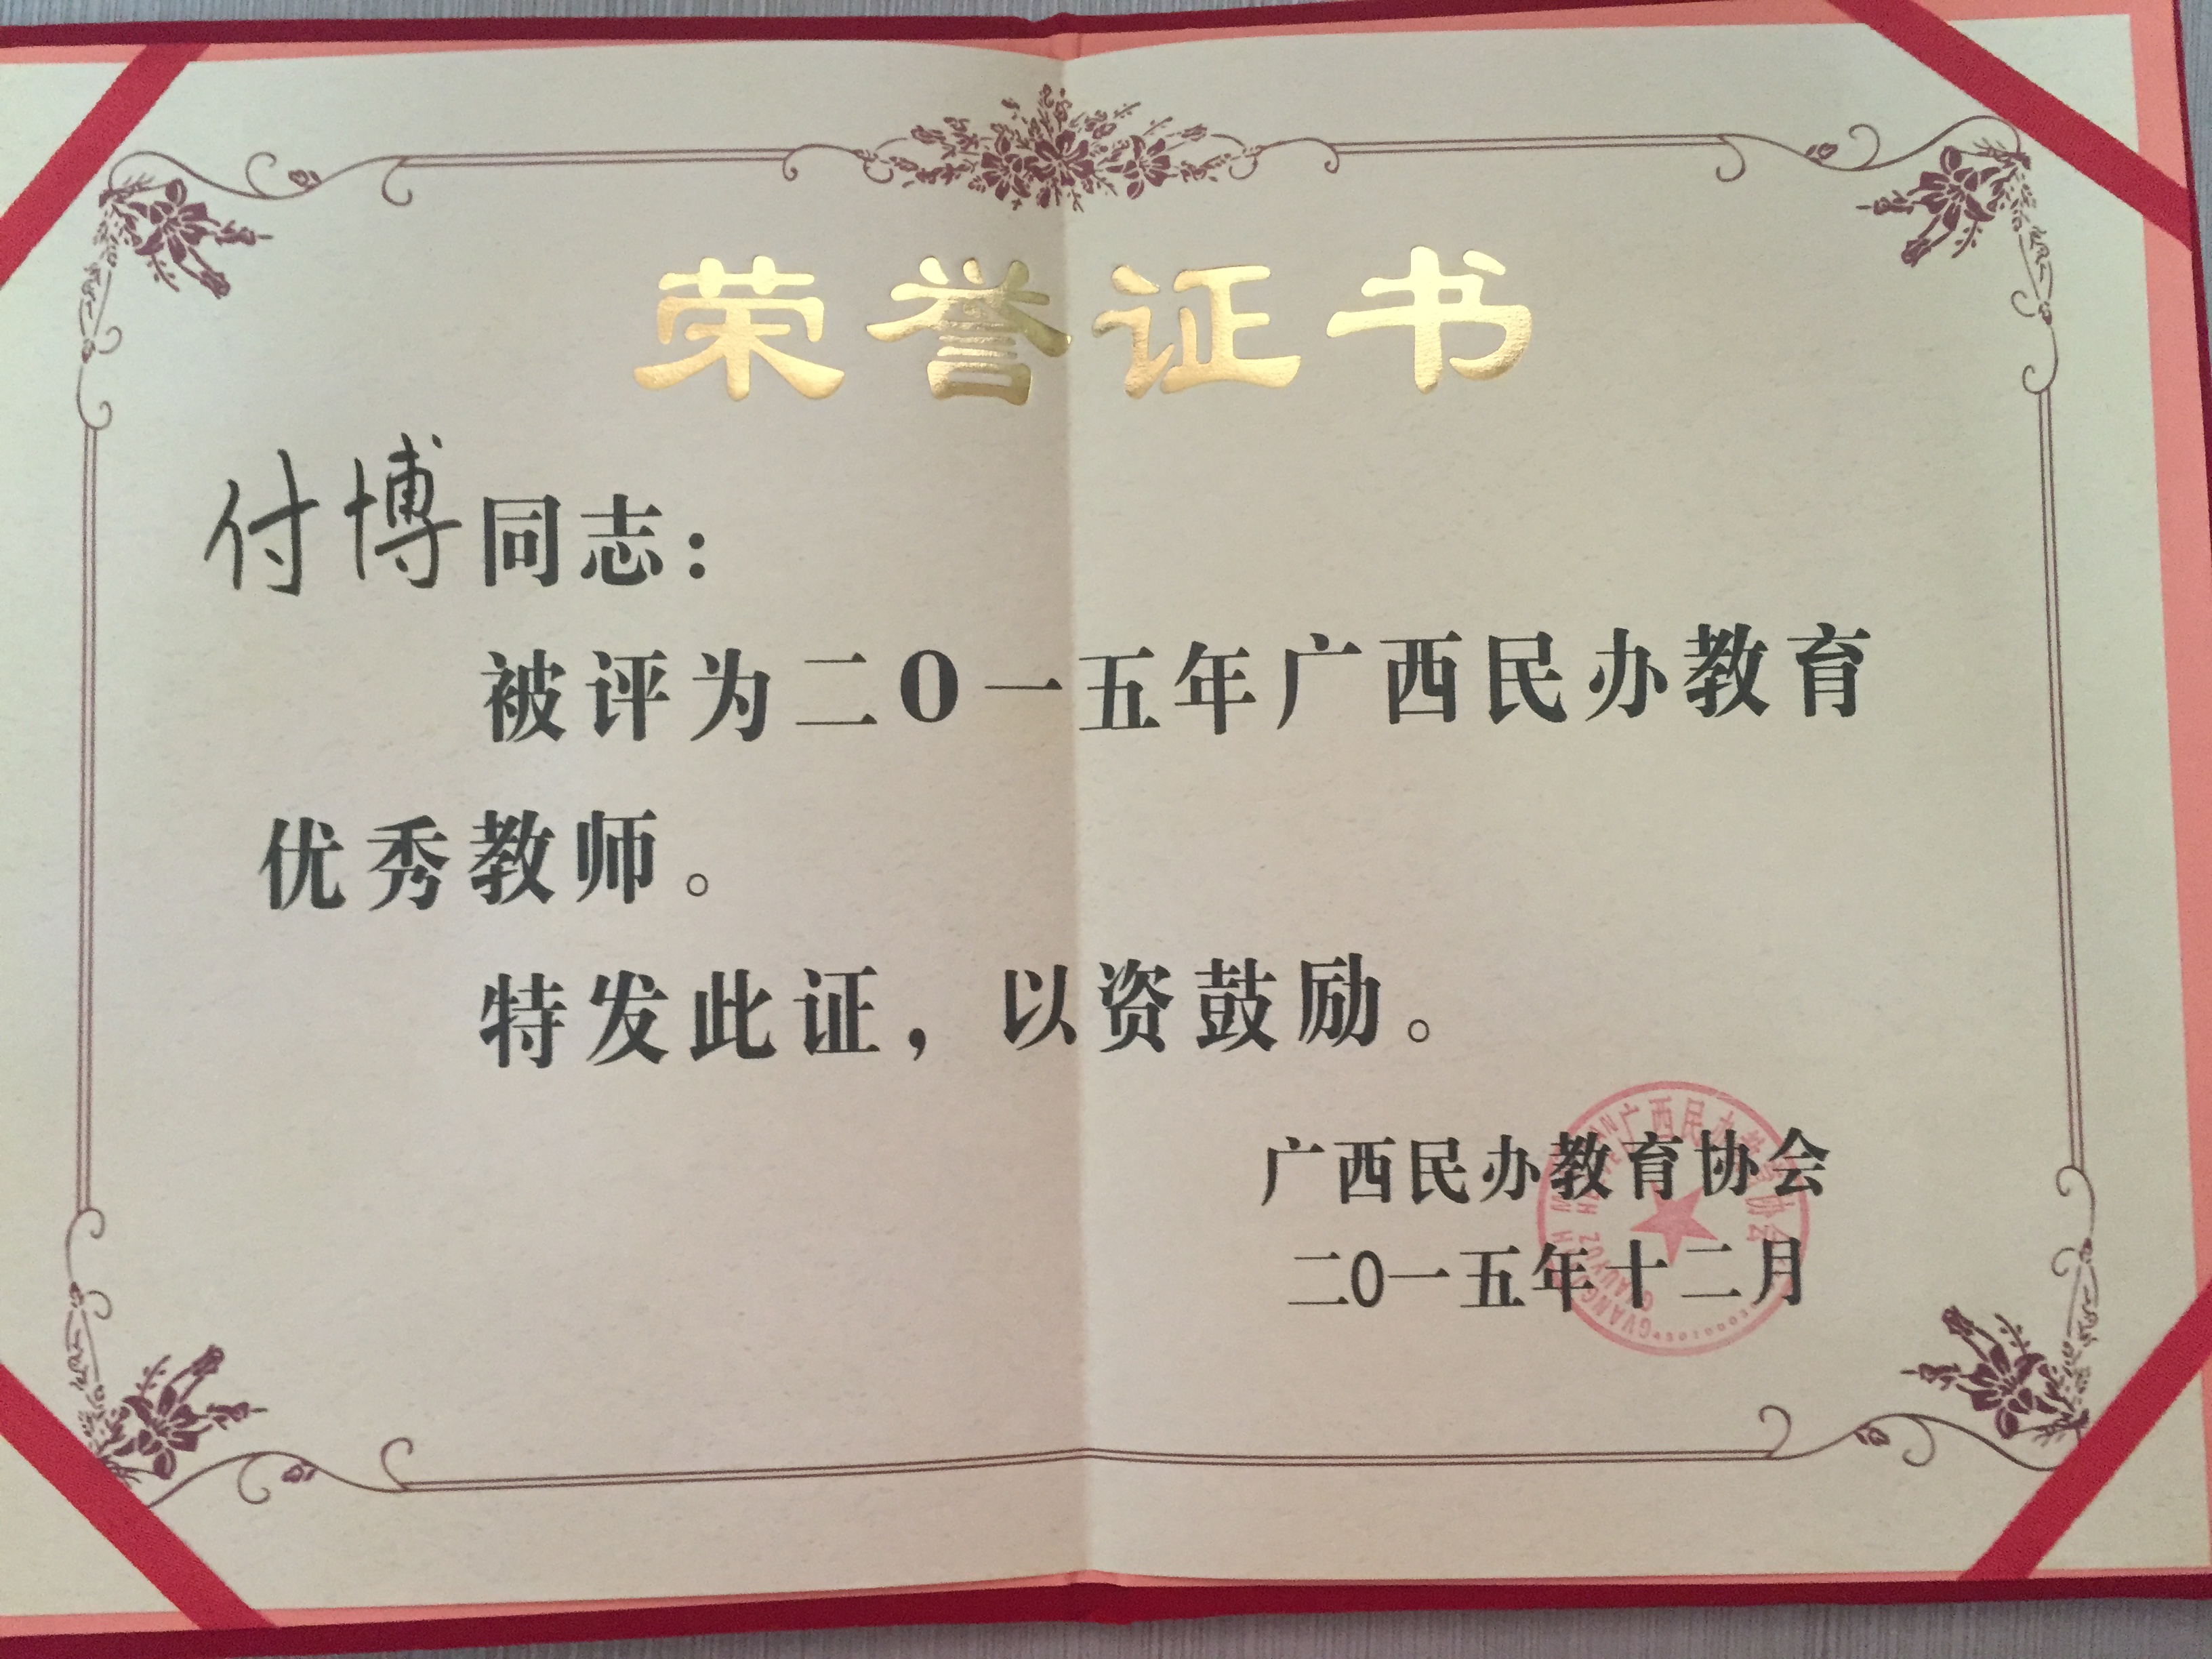 荣誉证书
付博同志：
被评为二0一五年广西民办教育
优秀教师。
特发此证，以资鼓励。
广西民办教育协会
二0一五年十二月
广西民办教育协会